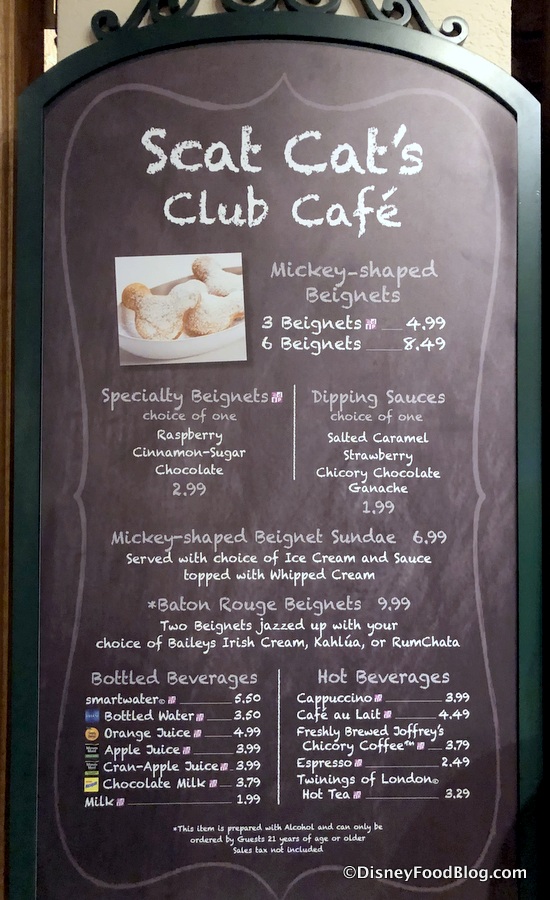 Scat Cat's
Club Café
Mickey-shaped
Beignets
3 Beignets 4.99
6 Beignets 8.49
Specialty Beignets
choice of one
Raspberry
Cinnamon-Sugar
Chocolate
2.99
Dipping Sauces
choice of one
Salted Caramel
Strawberry
Chicory Chocolate
Ganache
1.99
Mickey-shaped Beignet Sundae 6.99
Served with choice of Ice Cream and Sauce
topped with Whipped Cream
*Baton Rouge Beignets 9.99
Two Beignets jazzed up with your
choice of Baileys Irish Cream, Kahlúa, or RumChata
Bottled Beverages
smartwater® 5.50
Bottled Water 3.50
Orange Juice 4.99
Apple Juice 3.99
Cran-Apple Juice 3.99
Chocolate Milk 3.79
Milk 1.99
Hot Beverages
Cappuccino 3.99
Café au Lait 4.49
Freshly Brewed Joffrey's
Chicory Coffee™ 3.79
Espresso 2.49
Twinings of London®
Hot Tea 3.29
*This item is prepared with Alcohol and can only be
ordered by Guests 21 years of age or older
Sales tax not included
©DisneyFoodBlog.com